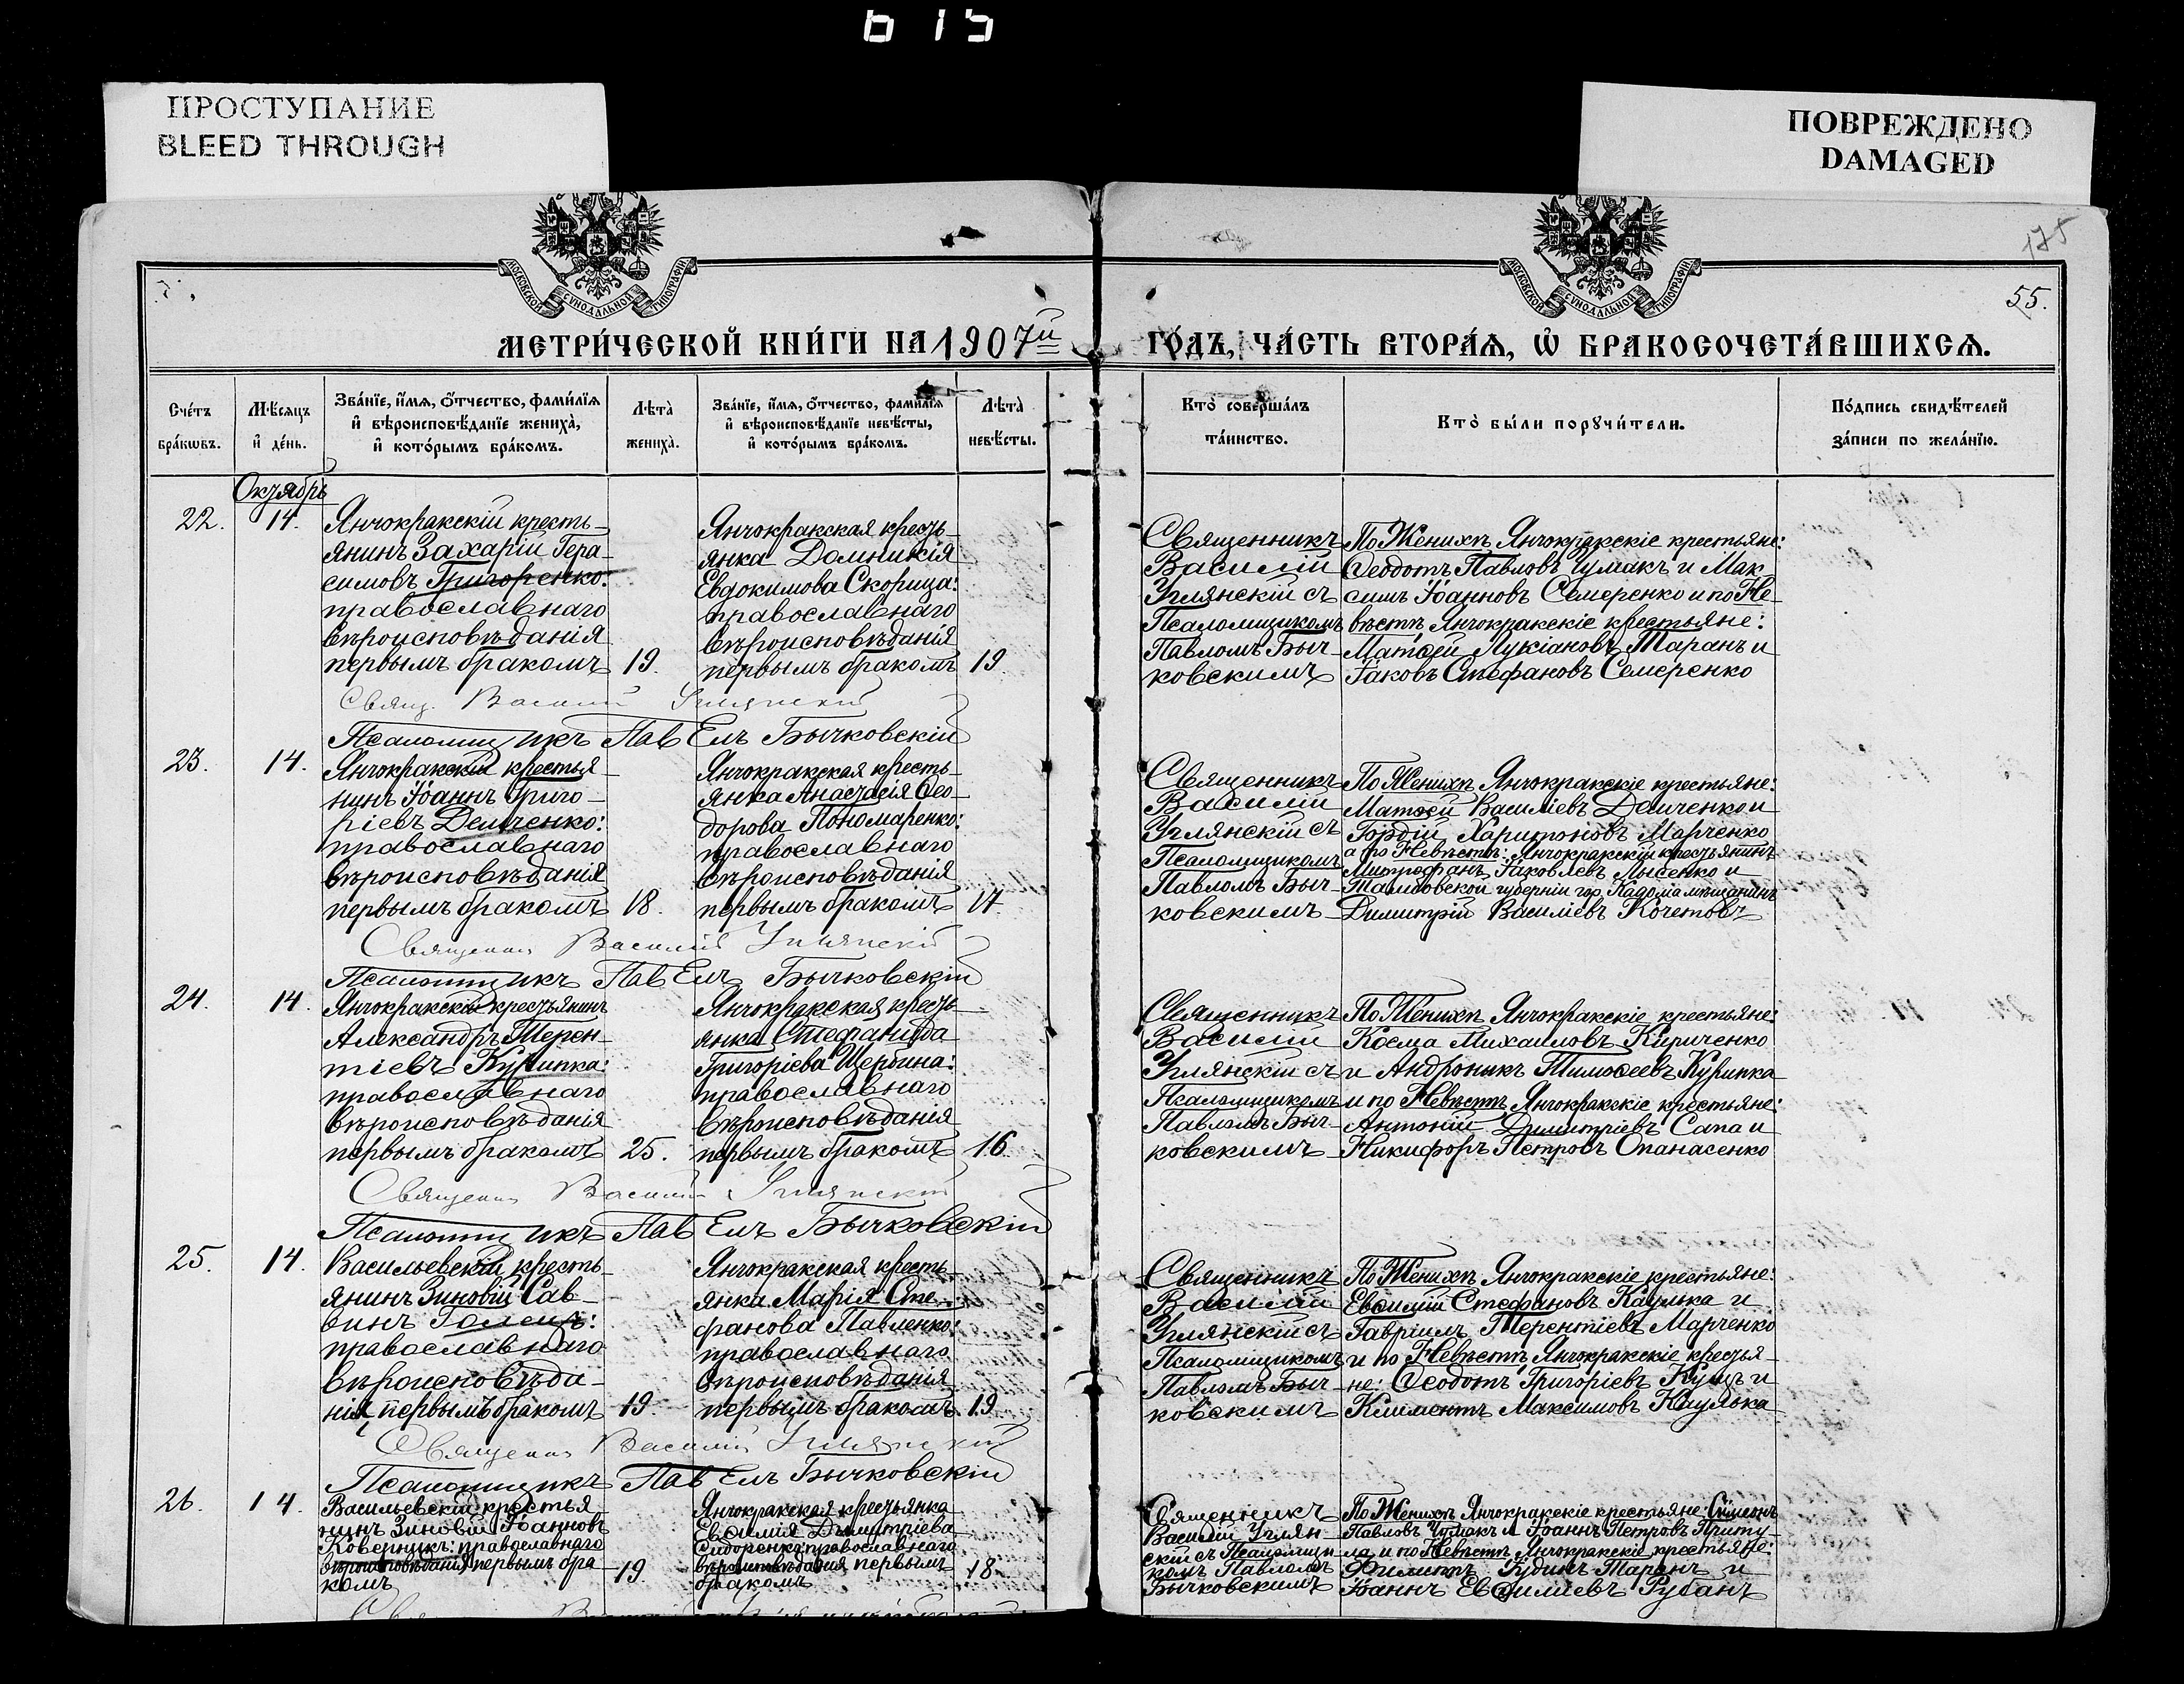 615
ПРОСТУПАНИЕ
BLEED THROUGH
ПОВРЕЖДЕНО
DAMAGED
МОСКОВСКОЙ СѴНОДАЛЬНОЙ ТИПОГРАФІИ
МОСКОВСКОЙ СѴНОДАЛЬНОЙ ТИПОГРАФІИ
175
55.
МЕТРИ́ЧЕСКОЙ КНИ́ГИ НА 1907й
ГО́ДЪ, ЧА́СТЬ ВТОРА́Ѧ, Ѡ҆ БРАКОСОЧЕТА́ВШИХСѦ.
Сче́тъ
бра́кѡвъ.
Мѣ́сѧцъ
и҆ де́нь.
Зва́нїе, и҆́мѧ, о҆́тчество, фами́лїѧ
и҆ вѣроисповѣ́данїе жениха̀,
и҆ кото́рымъ бра́комъ.
Лѣта̀
жениха̀.
Зва́нїе, и҆́мѧ, о҆́тчество, фами́лїѧ
и҆ вѣроисповѣ́данїе невѣ́сты,
и҆ кото́рымъ бра́комъ.
Лѣта̀
невѣ́сты.
Кто̀ соверша́лъ
та́инство.
Кто̀ бы́ли порꙋчи́тели.
По́дпись свидѣ́телей
за́писи по жела́нїю.
Октябрь
22.
14.
Янчокракскій кресть-
янинъ Захарій Гера-
симовъ Григоренко:
православнаго
вѣроисповѣданія
первымъ бракомъ
19.
Янчокракская кресть-
янка Домникія
Евдокимова Скорица:
православнаго
вѣроисповѣданія
первымъ бракомъ
19.
Священникъ
Василій
Углянскій съ
Псаломщикомъ
Павломъ Быч-
ковскимъ
По Женихѣ Янчокракскіе крестьяне:
Ѳеодотъ Павловъ Чумакъ и Мак-
симъ Іоанновъ Семеренко и по Не-
вѣстѣ Янчокракскіе крестьяне:
Матѳей Лукіановъ Таранъ и
Іаковъ Стефановъ Семеренко
Свящ. Василій Углянскій
Псаломщикъ Павелъ Бычковскій
23.
14.
Янчокракскій крестья-
нинъ Іоаннъ Григо-
ріевъ Демченко:
православнаго
вѣроисповѣданія
первымъ бракомъ
18.
Янчокракская кресть-
янка Анастасія Ѳео-
дорова Пономаренко:
православнаго
вѣроисповѣданія
первымъ бракомъ
17.
Священникъ
Василій
Углянскій съ
Псаломщикомъ
Павломъ Быч-
ковскимъ
По Женихѣ Янчокракскіе крестьяне:
Матѳей Василіевъ Демченко и
Гордій Харитоновъ Марченко
а по Невѣстѣ: Янчокракскій крестьянинъ
Митрофанъ Іаковлевъ Лысенко и
Тамбовской губерніи гор. Кадома мѣщанинъ
Димитрій Василіевъ Кочетовъ
Священникъ Василій Углянскій
Псаломщикъ Павелъ Бычковскій
24.
14.
Янчокракскій крестьянинъ
Александръ Терен-
тіевъ Курипка:
православнаго
вѣроисповѣданія
первымъ бракомъ
25.
Янчокракская кресть-
янка Стефанида
Григоріева Щербина:
православнаго
вѣроисповѣданія
первымъ бракомъ
16.
Священникъ
Василій
Углянскій съ
Псаломщикомъ
Павломъ Быч-
ковскимъ
По Женихѣ Янчокракскіе крестьяне:
Косма Михаиловъ Кириченко
и Андроникъ Тимоѳеевъ Курипка
и по Невѣстѣ Янчокракскіе крестьяне:
Антоній Димитріевъ Сапа и
Никифоръ Петровъ Опанасенко
Священникъ Василій Углянскій
Псаломщикъ Павелъ Бычковскій
25.
14.
Васильевскій кресть-
янинъ Зиновій Сав-
винъ Голецъ:
православнаго
вѣроисповѣда-
нія, первымъ бракомъ
19.
Янчокракская кресть-
янка Марія Сте-
фанова Павленко:
православнаго
вѣроисповѣданія
первымъ бракомъ.
19.
Священникъ
Василій
Углянскій съ
Псаломщикомъ
Павломъ Быч-
ковскимъ
По Женихѣ Янчокракскіе крестьяне:
Евѳимій Стефановъ Кацулка и
Гавріилъ Терентіевъ Марченко
и по Невѣстѣ Янчокракскіе крестья-
не: Ѳеодотъ Григоріевъ Куцъ и
Климентъ Максимовъ
Священникъ Василій Углянскій
Псаломщикъ Павелъ Бычковскій
26.
14.
Васильевскій крестья-
нинъ Зиновій Іоанновъ
Коверникъ: православнаго
вѣроисповѣданія первымъ бра-
комъ
19.
Янчокракская крестьянка
Евѳимія Димитріева
Сидоренко православнаго
вѣроисповѣданія первымъ
бракомъ
18.
Священникъ
Василій Углян-
скій съ Псаломщи-
комъ Павломъ
Бычковскимъ
По Женихѣ Янчокракскіе крестьяне: Симеонъ
Павловъ Чумакъ и Іоаннъ Петровъ Приту-
ла и по Невѣстѣ Янчокракскіе крестьяне:
Филиппъ Іудинъ Таранъ и
Іоаннъ Евѳиміевъ Рубанъ